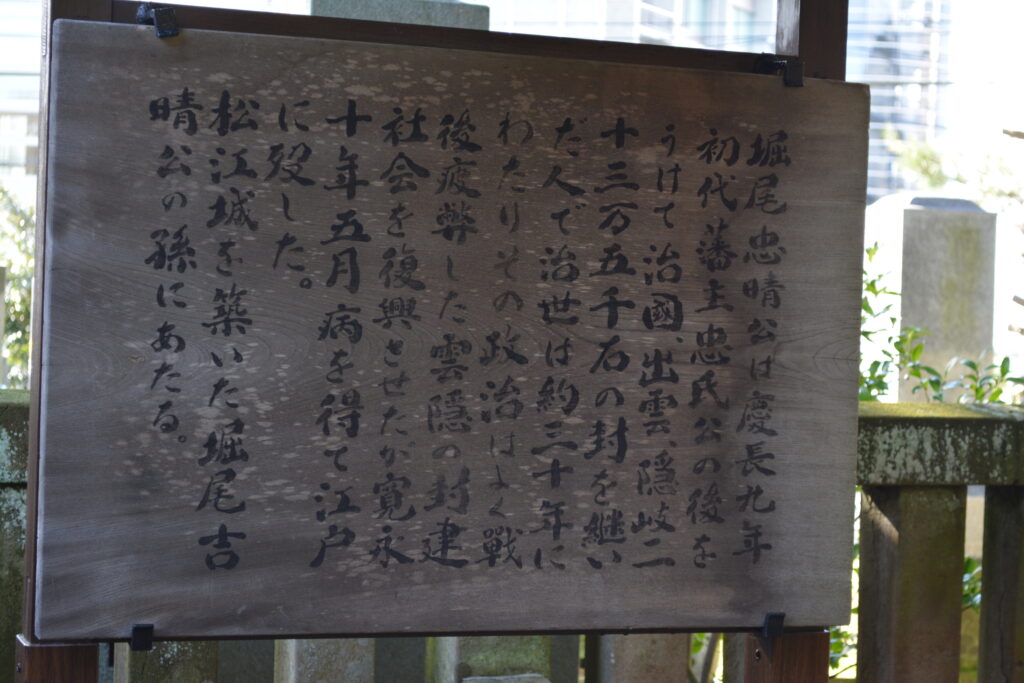 堀尾忠晴公は慶長九年
初代藩主忠氏公の後を
うけて治國、出雲、隠岐二
十三万五千石の封を継い
だ人で治世は約三十年に
わたりその政治はよく戰
後疲弊した雲隠の封建
社会を復興させたが寛永
十年五月病を得て江戸
に歿した。
松江城を築いた堀尾吉
晴公の孫にあたる。